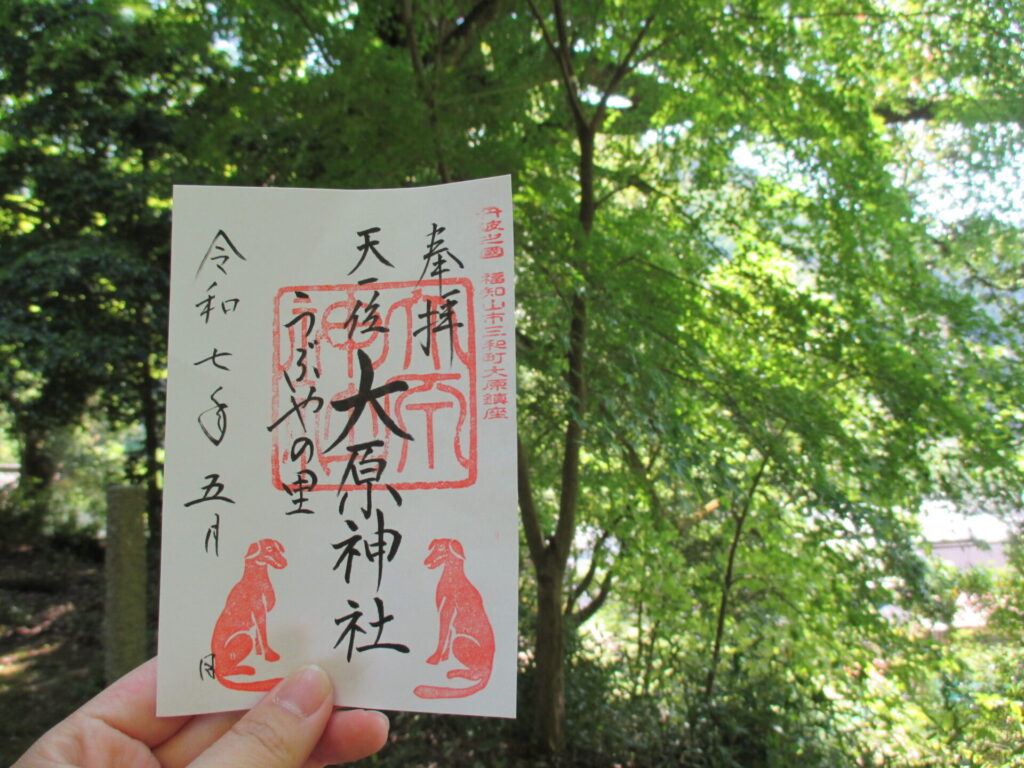 丹波之國 福知山市三和町大原鎮座
奉拝
天一 大原神社
うぶやの里
大原
神社
令和七年五月 日